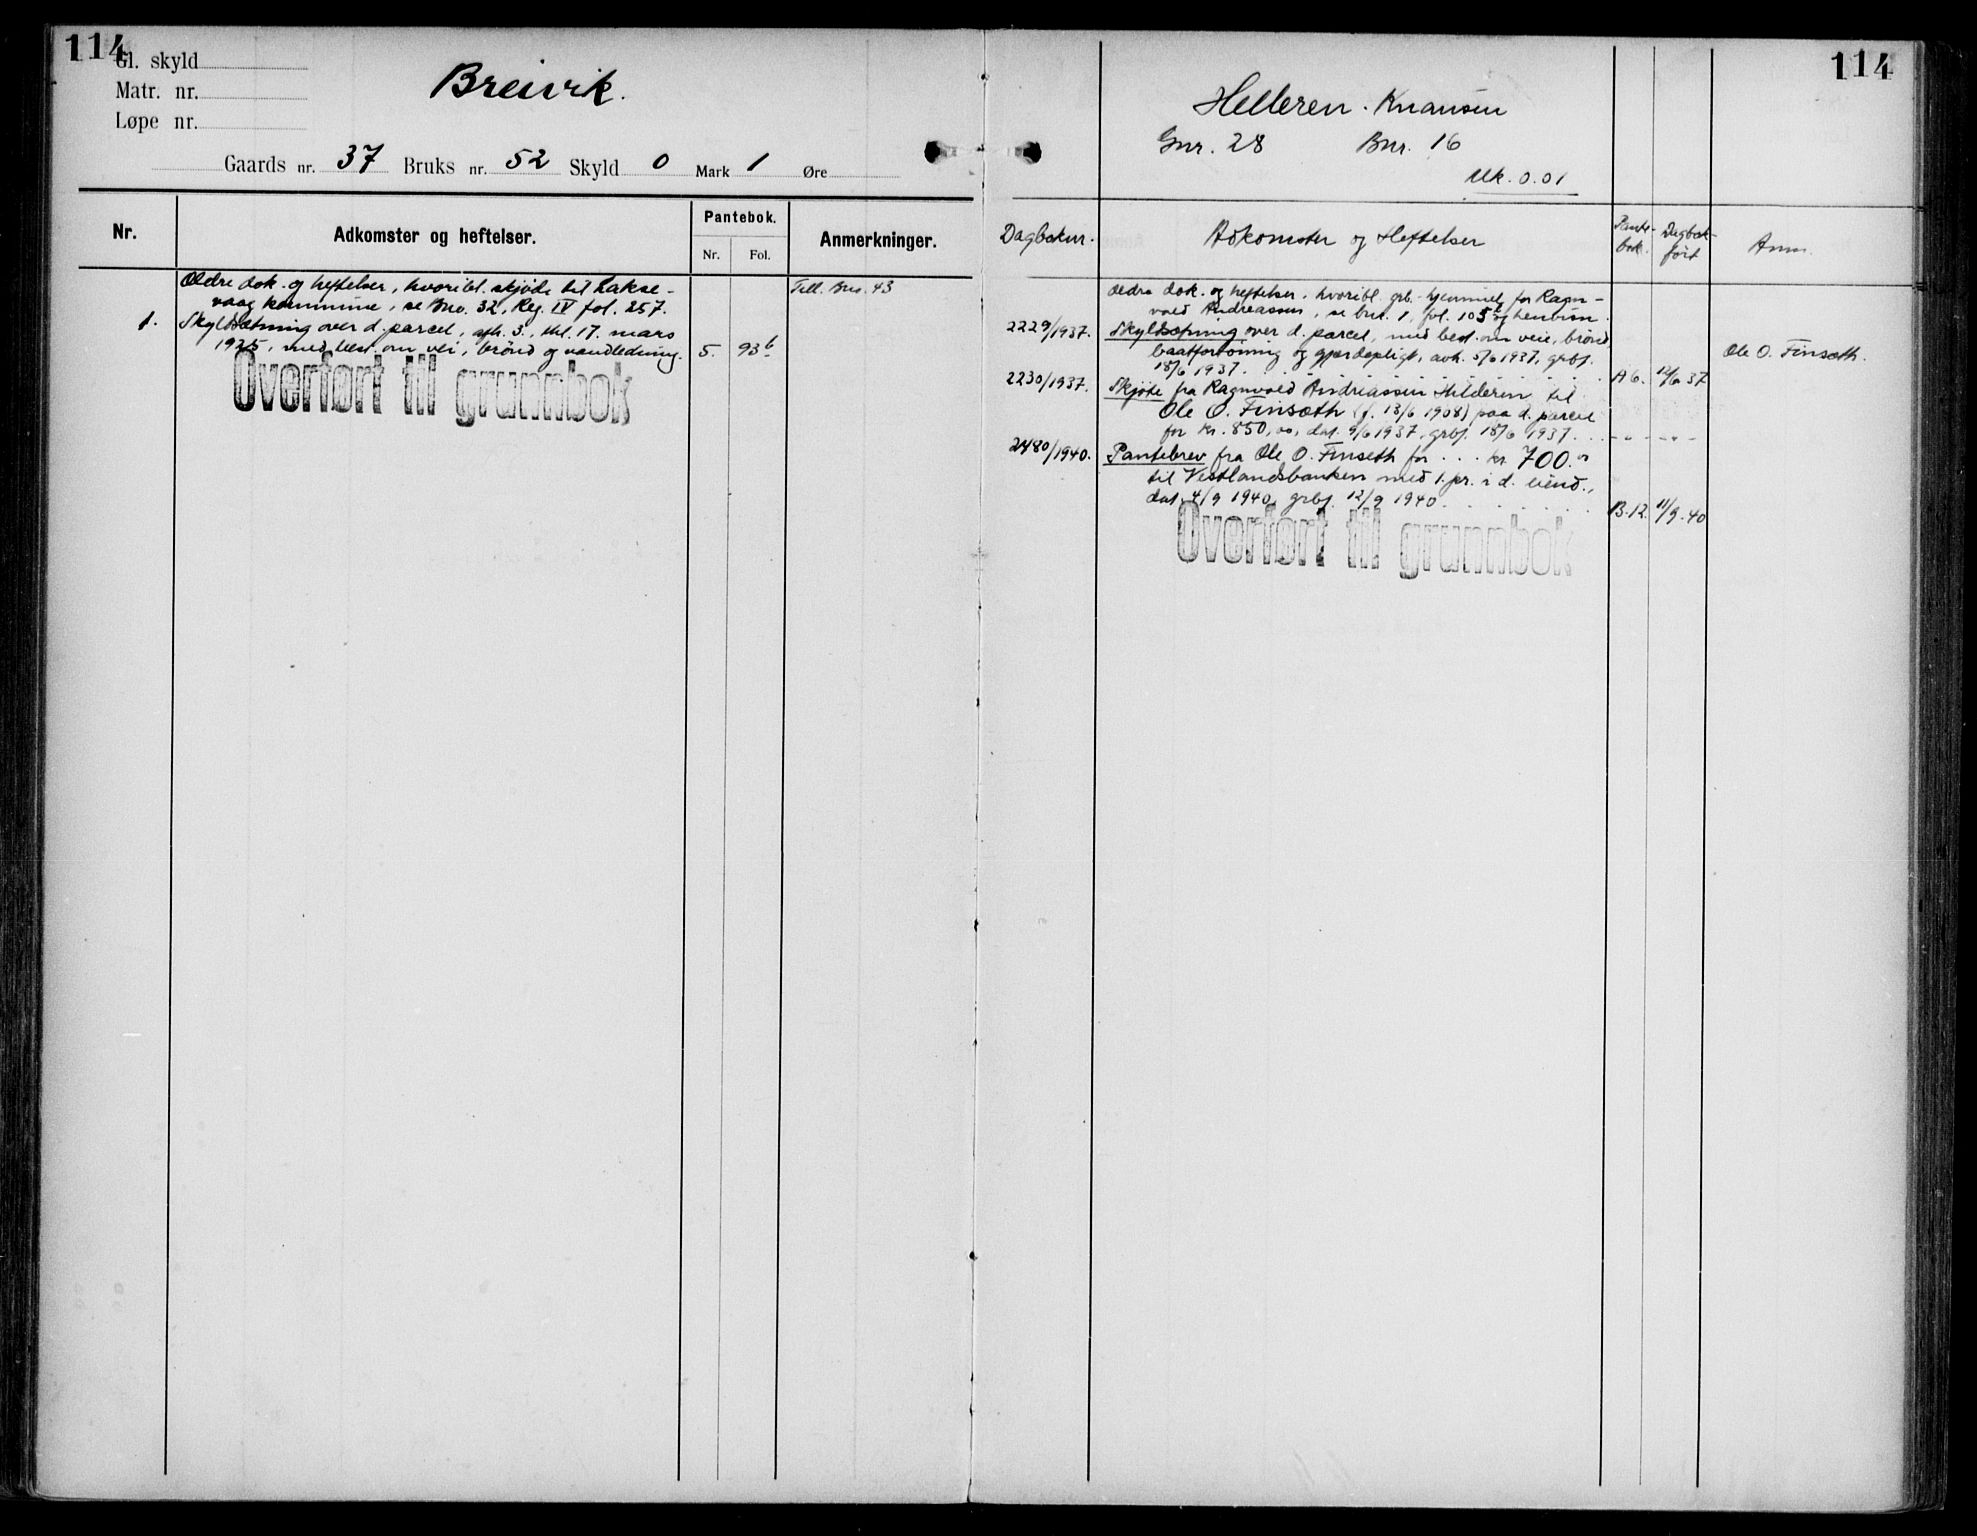 114
Gl. skyld
Matr. nr.
Løpe nr.
Breivik.
Gaards nr. 37 Bruks nr. 52 Skyld 0 Mark 1 Øre
Nr.
Adkomster og heftelser.
Pantebok.
Nr. Fol.
Anmerkninger.
Ældre dok. og heftelser, hvoribl. skjøde til Lakse-
vaag kommune, se Bno. 32, Reg. IV fol. 257.
Till. Bno. 43
1. Skyldsætning over d. parcel, afh. 3., thl. 17. mars
1925, med best. om vei, brønd og vandledning. 5. 93b
Overført til grunnbok
114
Helleren - Knausen
Gnr. 28 Bnr. 16
Mk. 0.01
Dagboknr.
Adkomster og Heftelser
Pante-
bok.
Dagbok-
ført
Anm.
Ældre dok. og heftelser, hvoribl. grb. hjemmel for Ragn-
vald Andreassen, se bnr. 1, fol. 105 og henvisn.
2229/1937. Skyldsætning over d. parcel, med best. om veie, brønd
baatfortøining og gjerdepligt, avh. 5/6 1937, grbf.
18/6 1937.
Ole O. Finseth.
2230/1937. Skjøte fra Ragnvald Andreassen Hilderen til A 6. 12/6 37
Ole O. Finseth (f. 13/6 1908) paa d. parcel
for kr. 850,00, dat. 9/6 1937, grbf. 18/6 1937. - " - - " -
2480/1940. Pantebrev fra Ole O. Finseth for . . . kr 700.00
til Vestlandsbanken med 1. pr. i d. eiend.,
dat. 4/9 1940, grbf. 12/9 1940. B.12. 11/9.40
Overført til grunnbok